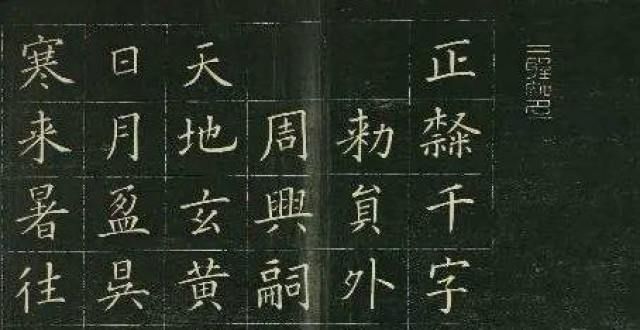 正隸千字
勑貟外
周興嗣
天地玄黄
日月盈昃
寒来暑往